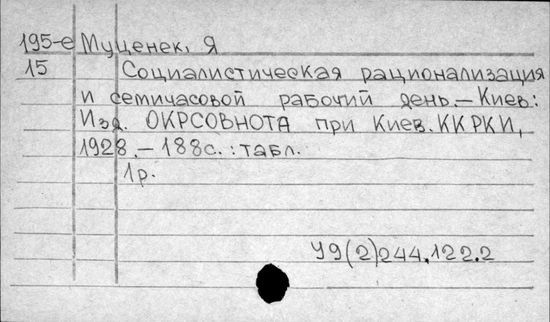 195-е Муценек, Я
15 Социалистическая рационализация
и семичасовой рабочий день.— Киев:
Изд. ОКРСОВНОТА при Киев. ККРКИ,
1928.— 188с.: табл.
1р.
У9(2)244.122.2